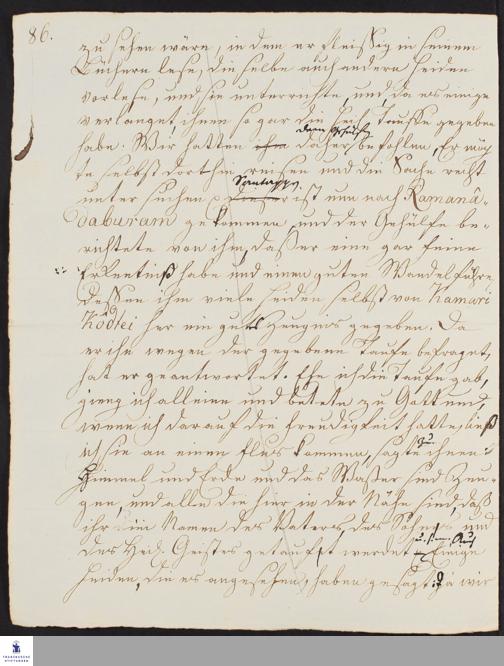 86.
zu sehen wäre, in dem er fleissig in seinen
Büchern lese, die selbe auch andern Heiden
vorlese, und sie unterrichte, und da es einige
verlanget ihnen so gar die heil. Tauffe gegeben
dem Gehülfen
habe. Wir hatten ihm daher befohlen, Er möch
te selbst dorthin reisen und die Sache recht
unter suchen. ist nun nach Ramanâ-
daburam gekommen, und der Gehülfe be-
richtete von ihm, dasser eine gar feine
Erkentniß habe und einen guten Wandel führe
dessen ihm viele Heiden selbst von Kamari
Kôdtei her ein gutes Zeugnis gegeben. Da
er ihn wegen der gegebene Taufe befraget,
hat er geantwortet. Ehe ich die Taufe gab,
gieng ich alleine und betete zu Gott und
wenn ich darauf die Freudigkeit hatte, ließ
ich sie an einen Flus kommen, sagte zu ihnen:
Himmel und Erde und das Waßer sind Zeu-
gen, und alle die hier in der Nähe sind, daß
ihr im Namen des Vaters, des Sohnes und
des Heil. Geistes getauft werdet. Einige
Heiden, die es angesehen, haben gesagt: ja wir
FRANCKESCHE
STIFTUNGEN